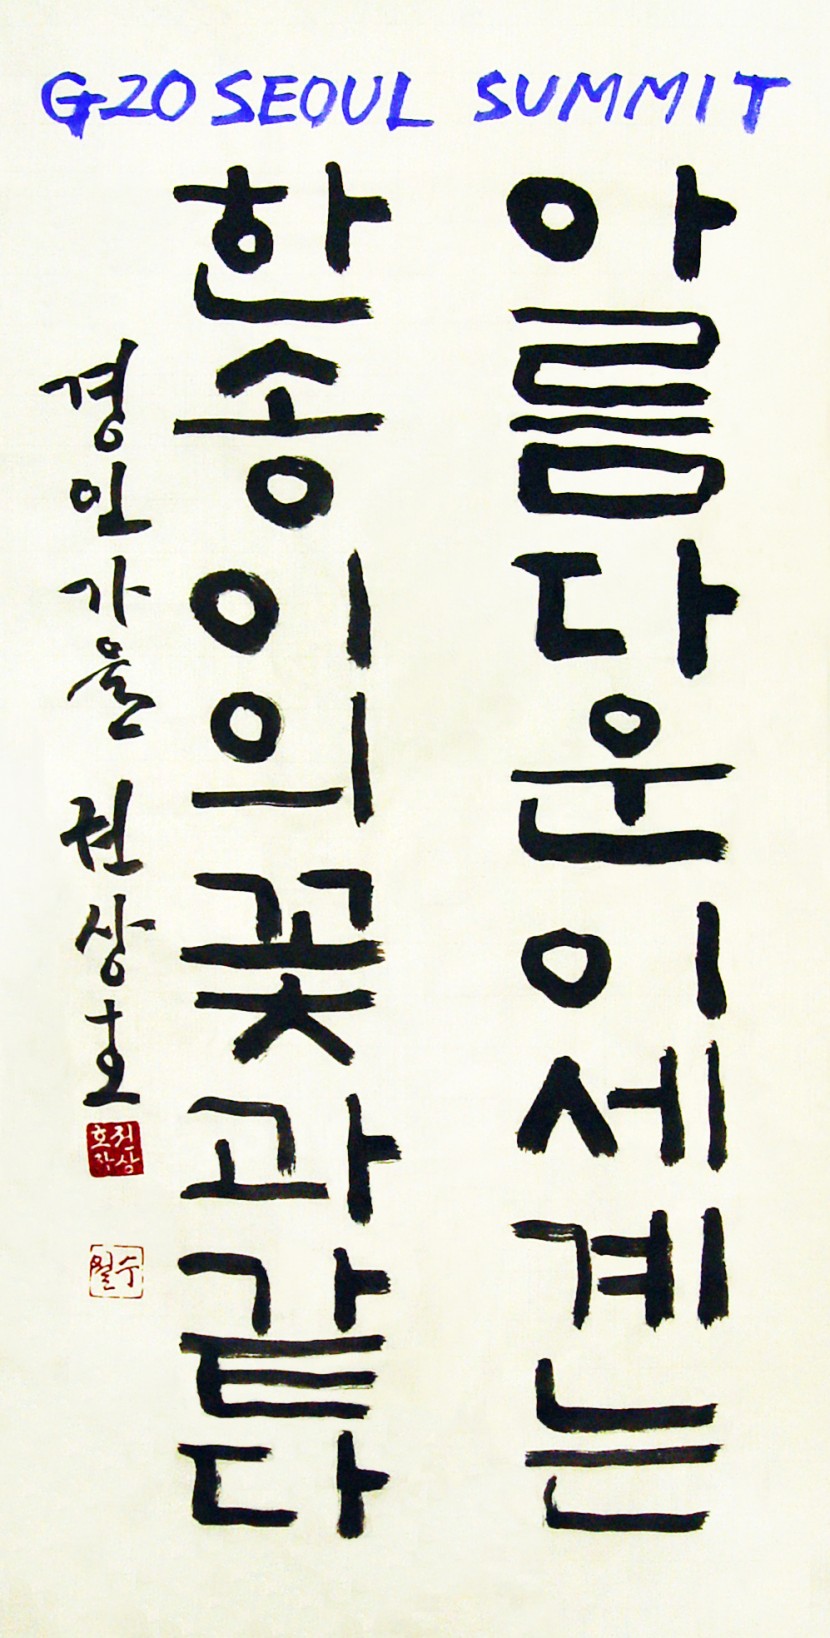 G20 SEOUL SUMMIT
아름다운이세계는
한송이의꽃과같다
경인가을 권상호
권상호작
수월